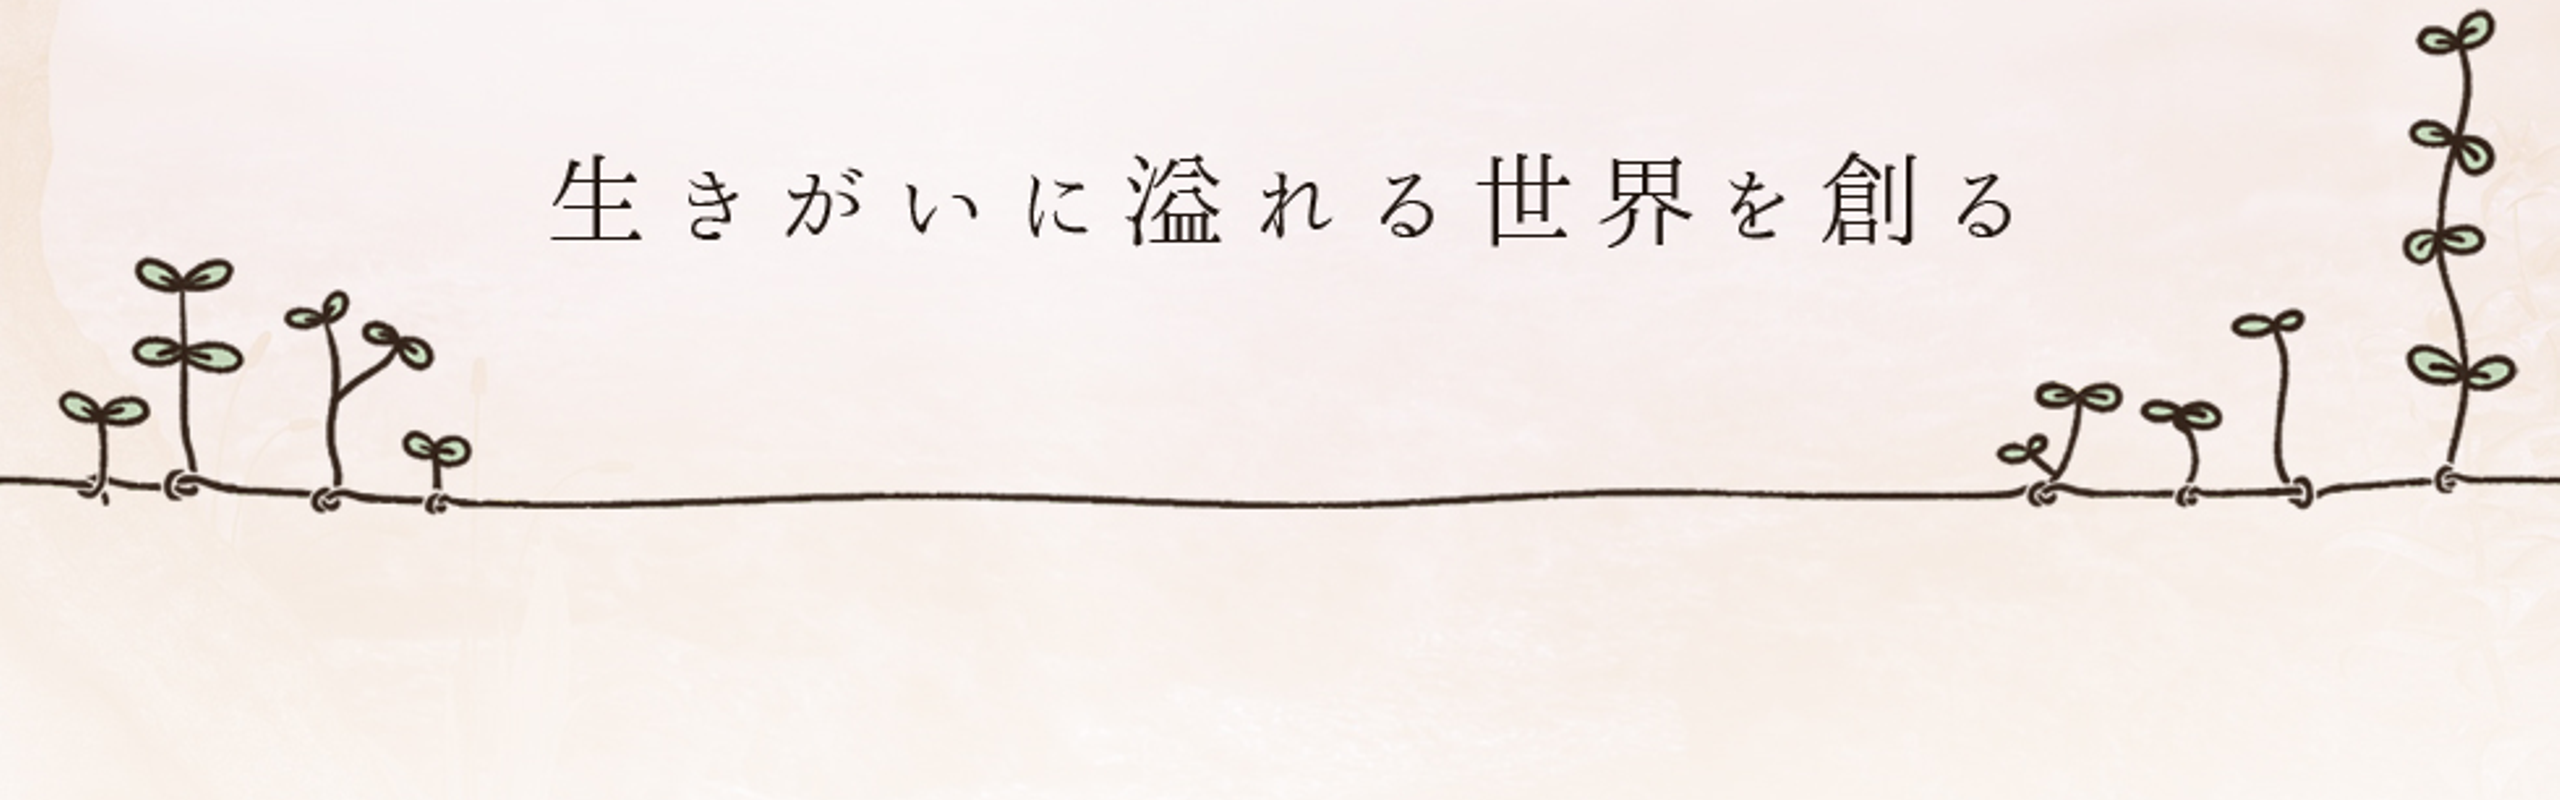 生きがいに溢れる世界を創る